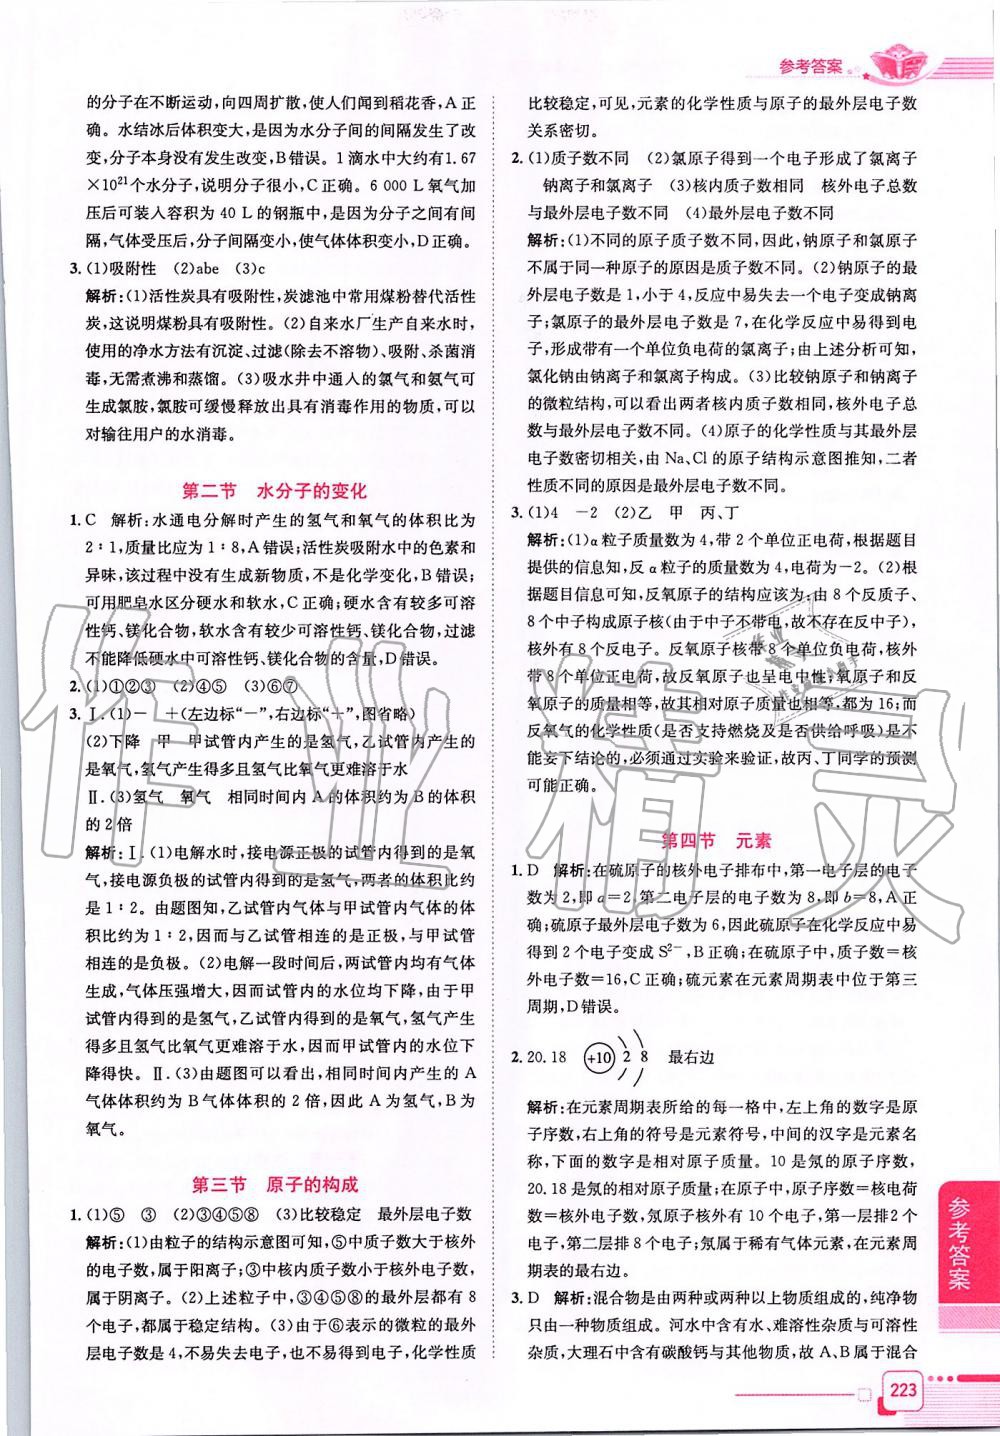 参考答案
的分子在不断运动,向四周扩散,使人们闻到稻花香,A正
确。水结冰后体积变大,是因为水分子间的间隔发生了改
变,分子本身没有发生改变,B错误。1滴水中大约有1.67
×10²¹个水分子,说明分子很小,C正确。6 000 L氧气加
压后可装入容积为 40 L的钢瓶中,是因为分子之间有间
隔,气体受压后,分子间隔变小,使气体体积变小,D正确。
3.(1)吸附性 (2)abe (3)c
解析:(1)活性炭具有吸附性,炭滤池中常用煤粉替代活性
炭,这说明煤粉具有吸附性。(2)自来水厂生产自来水时,
使用的净水方法有沉淀、过滤(除去不溶物)、吸附、杀菌消
毒,无需煮沸和蒸馏。(3)吸水井中通人的氯气和氨气可
生成氯胺,氯胺可缓慢释放出具有消毒作用的物质,可以
对输往用户的水消毒。
第二节 水分子的变化
1. C 解析:水通电分解时产生的氢气和氧气的体积比为
2∶1,质量比应为1∶8,A错误;活性炭吸附水中的色素和
异味,该过程中没有生成新物质,不是化学变化,B错误;
可用肥皂水区分硬水和软水,C正确;硬水含有较多可溶
性钙、镁化合物,软水含有较少可溶性钙、镁化合物,过滤
不能降低硬水中可溶性钙、镁化合物的含量,D错误。
2.(1)①②③ (2)④⑤ (3)⑥⑦
3.Ⅰ.(1)— +(左边标“—”,右边标“+”,图省略)
(2)下降 甲 甲试管内产生的是氢气,乙试管内产生的
是氧气,氢气产生得多且氢气比氧气更难溶于水
Ⅱ.(3)氢气 氧气 相同时间内A的体积约为B的体积
的2倍
解析:Ⅰ.(1)电解水时,接电源正极的试管内得到的是氧
气,接电源负极的试管内得到的是氢气,两者的体积比约
是1∶2。由题图知,乙试管内气体与甲试管内气体的体
积比约为1∶2,因而与乙试管相连的是正极,与甲试管
相连的是负极。(2)电解一段时间后,两试管内均有气体
生成,气体压强增大,因而试管内的水位均下降,由于甲
试管内产生的是氢气,乙试管内产生的是氧气,氢气产生
得多且氢气比氧气更难溶于水,因而甲试管内的水位下
降得快。Ⅱ.(3)由题图可以看出,相同时间内产生的A
气体体积约为B气体体积的2倍,因此A为氢气,B为
氧气。
第三节 原子的构成
1.(1)⑤ ③ (2)③④⑤⑧ (3)比较稳定 最外层电子数
解析:(1)由粒子的结构示意图可知,⑤中质子数大于核外
的电子数,属于阳离子;③中核内质子数小于核外电子数,
属于阴离子。(2)上述粒子中,③④⑤⑧的最外层都有8
个电子,都属于稳定结构。(3)由于⑥表示的微粒的最外
层电子数是4,不易失去电子,也不易得到电子,化学性质
比较稳定,可见,元素的化学性质与原子的最外层电子数
关系密切。
2.(1)质子数不同 (2)氯原子得到一个电子形成了氯离子
钠离子和氯离子 (3)核内质子数相同 核外电子总数
与最外层电子数不同 (4)最外层电子数不同
解析:(1)不同的原子质子数不同,因此,钠原子和氯原子
不属于同一种原子的原因是质子数不同。(2)钠原子的最
外层电子数是1,小于4,反应中易失去一个电子变成钠离
子;氯原子的最外层电子数是7,在化学反应中易得到电
子,形成带有一个单位负电荷的氯离子;由上述分析可知,
氯化钠由钠离子和氯离子构成。(3)比较钠原子和钠离子
的微粒结构,可以看出两者核内质子数相同,核外电子总
数与最外层电子数不同。(4)原子的化学性质与其最外层
电子数密切相关,由Na、Cl的原子结构示意图推知,二者
性质不同的原因是最外层电子数不同。
3.(1)4 -2 (2)乙 甲 丙、丁
解析:(1)α粒子质量数为4,带2个单位正电荷,根据题目
提供的信息知,反α粒子的质量数为4,电荷为-2。(2)根
据题目信息可知,反氧原子的结构应该为:由8个反质子、
8个中子构成原子核(由于中子不带电,故不存在反中子),
核外有8个反电子。反氧原子核带8个单位负电荷,核外
带8个单位正电荷,故反氧原子也呈电中性,氧原子和反氧
原子的质量相等,故其相对原子质量也相等,都为16;而反
氧气的化学性质(是否支持燃烧及是否供给呼吸)是不
能妄下结论的,必须通过实验来验证,故丙、丁同学的预测
可能正确。
第四节 元素
1. D 解析:在硫原子的核外电子排布中,第一电子层的电子
数为2,即a=2,第二电子层的电子数为8,即b=8,A正
确;硫原子最外层电子数为6,因此硫原子在化学反应中易
得到2个电子变成S²⁻,B正确;在硫原子中,质子数=核
外电子数=16,C正确;硫元素在元素周期表中位于第三
周期,D错误。
2. 20.18 +10 2 8 最右边
解析:在元素周期表所给的每一格中,左上角的数字是原
子序数,右上角的符号是元素符号,中间的汉字是元素名
称,下面的数字是相对原子质量。10是氖的原子序数,
20.18是氖的相对原子质量;在原子中,原子序数=核电荷
数=核外电子数,氖原子核外有10个电子,第一层排2个
电子,第二层排8个电子;氖属于稀有气体元素,在元素周
期表的最右边。
3. D 解析:混合物是由两种或两种以上物质组成的,纯净物
只由一种物质组成。河水中含有水、难溶性杂质与可溶性
杂质,大理石中含有碳酸钙与其他物质,故A、B属于混合
参考答案
223
作业精灵